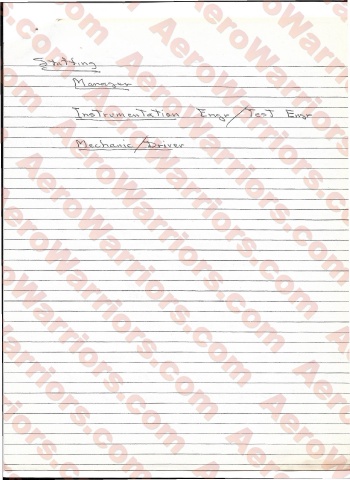 Staffing
Manager
Instrumentation Engr/Test Engr
Mechanic/Driver
AeroWarriors.com